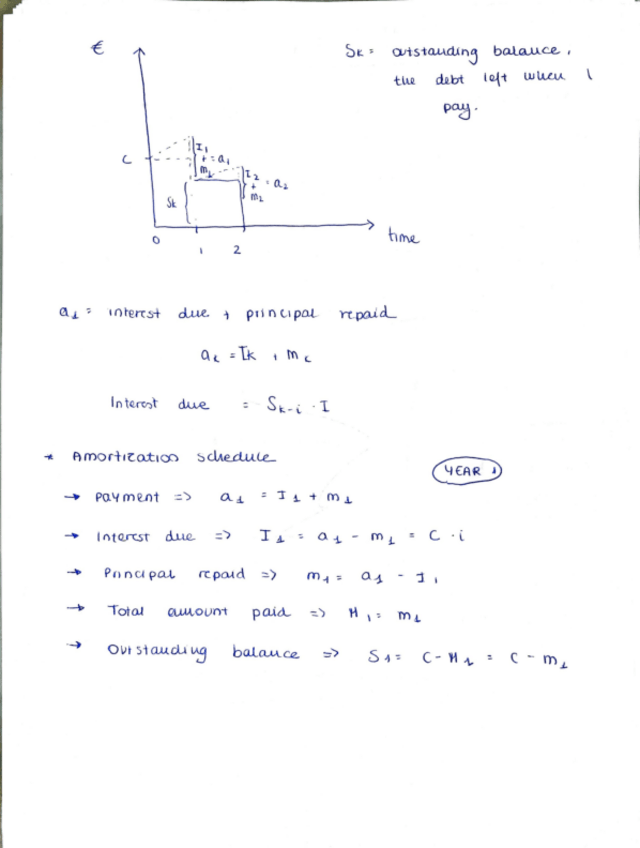 €
Sk = outstanding balance,
the debt left when I
pay.
C
I₁
+ = a₁
m₁
I₂
+ = a₂
m₂
Sk
0
1
2
time
a₁ = interest due + principal repaid
aₖ = Iₖ + mₖ
Interest due = Sₖ₋ᵢ · I
* Amortization schedule
YEAR 1
→ payment => a₁ = I₁ + m₁
→ Interest due => I₁ = a₁ - m₁ = C · i
→ Principal repaid => m₁ = a₁ - I₁
→ Total amount paid => M₁ = m₁
→ Outstanding balance => S₁ = C - M₁ = C - m₁